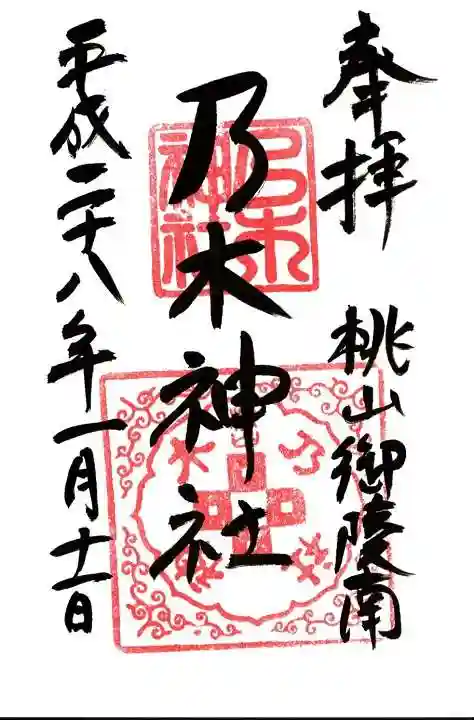 奉拝
桃山御陵南
乃木神社
乃木
神社
平成二十八年一月十一日